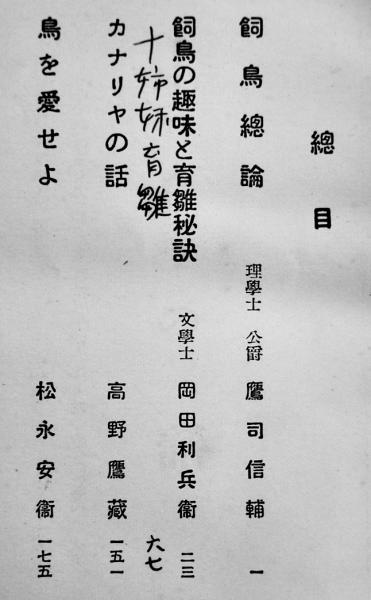 總目
飼鳥總論 理學士 公爵 鷹司信輔 一
飼鳥の趣味と育雛秘訣 文學士 岡田利兵衞 二三
十姉妹育雛 六七
カナリヤの話 高野鷹藏 一五一
鳥を愛せよ 松永安衞 一七五